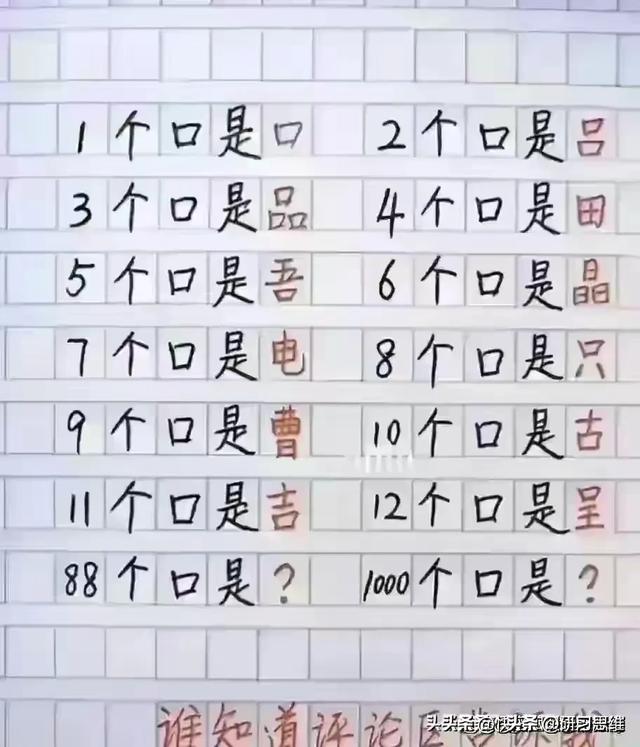 1个口是口 2个口是吕
3个口是品 4个口是田
5个口是吾 6个口是晶
7个口是电 8个口是只
9个口是曹 10个口是古
11个口是吉 12个口是呈
88个口是? 1000个口是?
谁知道评论区
头条@快乐@研习思维